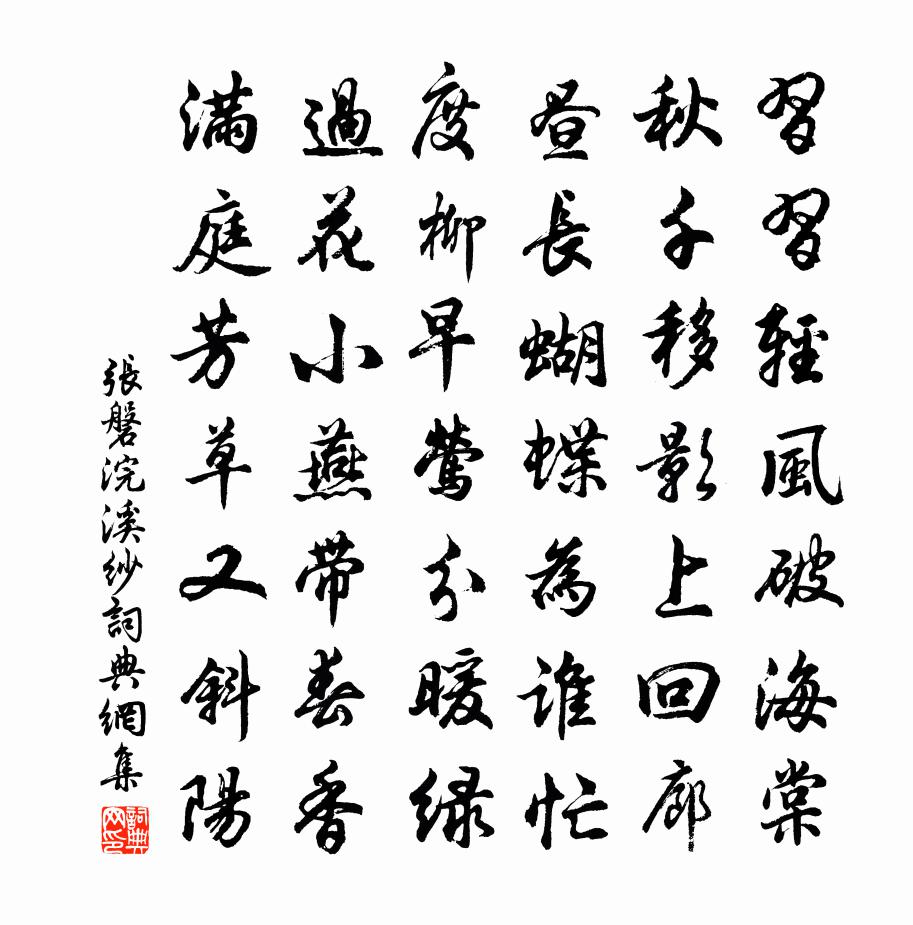 習習輕風破海棠
秋千移影上回廊
晝長蝴蝶為誰忙
度柳早鶯分暖绿
過花小燕帶春香
滿庭芳草又斜陽
張磐浣溪紗詞典網集
詞典网印